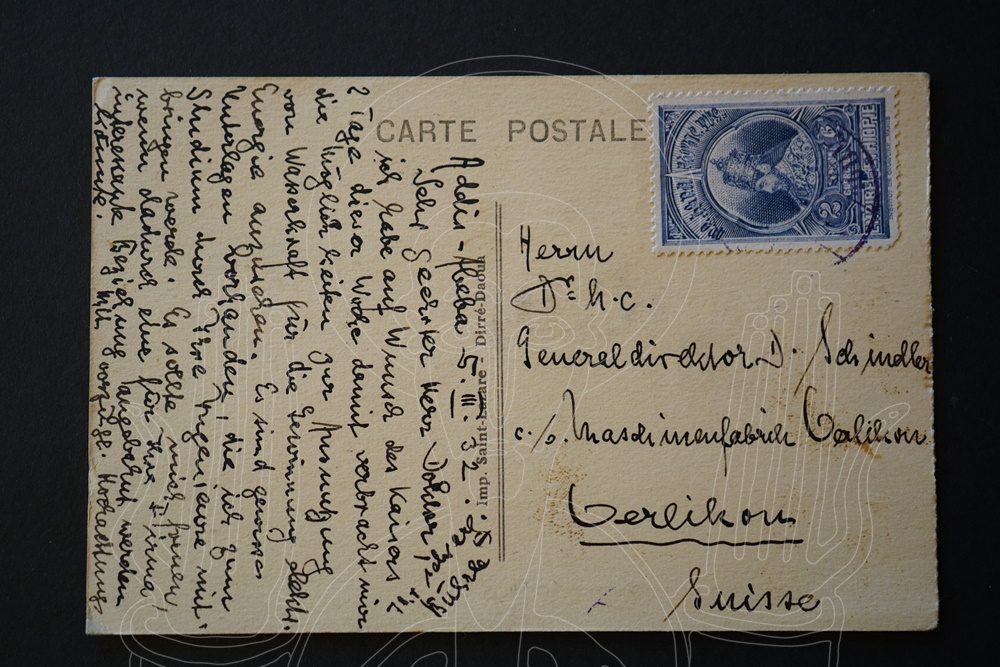 CARTE POSTALE
Addis-Abeba 5. III. 32.
Sehr geehrter Herr Doktor,
ich habe auf Wunsch des Kaisers
2 Tage dieser Woche damit verbracht mir
die Möglichkeiten zur Ausnutzung
von Wasserkraft für die Gewinnung elektr.
Energie anzusehen. Es sind gewisse
Unterlagen vorhanden, die ich zum
Studium durch Ihre Ingenieure mit-
bringen werde. Es sollte mich freuen,
wenn dadurch eine für Ihre Firma
interessante Beziehung angebahnt werden
könnte. Mit vorzügl. Hochachtung
Imp. Saint-Lazare - Dirré-Daoua
Herrn
Dr. h. c.
Generaldirektor D. Schindler
c/o. Maschinenfabrik Oerlikon
Oerlikon
Suisse
2
ETHIOPIE